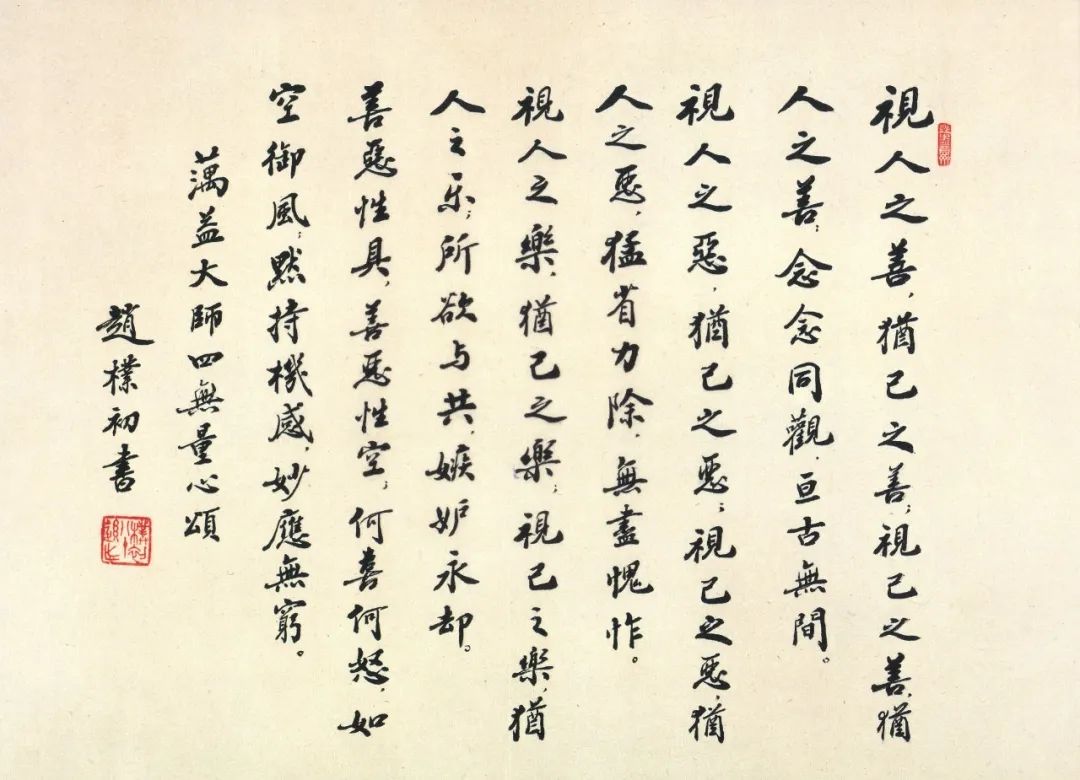 視人之善，猶己之善；視己之善，猶
人之善；念念同觀，亘古無間。
視人之惡，猶己之惡；視己之惡，猶
人之惡，猛省力除，無盡愧怍。
視人之樂，猶己之樂；視己之樂，猶
人之乐；所欲与共，嫉妒永却。
善惡性具，善惡性空，何喜何怒，如
空御風；默持機感，妙應無窮。
蕅益大師四無量心頌
趙樸初書